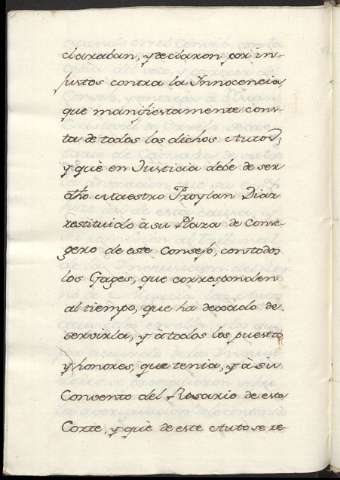 claraban, y declaron por in-
justos contra la Innocencia,
que manifiestamente cons-
ta de todos los dichos Autos,
y que en Justicia debe de ser
dho Maestro Froylan Diaz
restituido à su Plaza de Conse-
gero de este Consejo, con todos
los Gages, que corresponden
al tiempo, que ha dexado de
servirla, y à todos los puestos
y honores, que tenia, y à su
Convento del Rosario de esta
Corte, y que de este Auto se re-